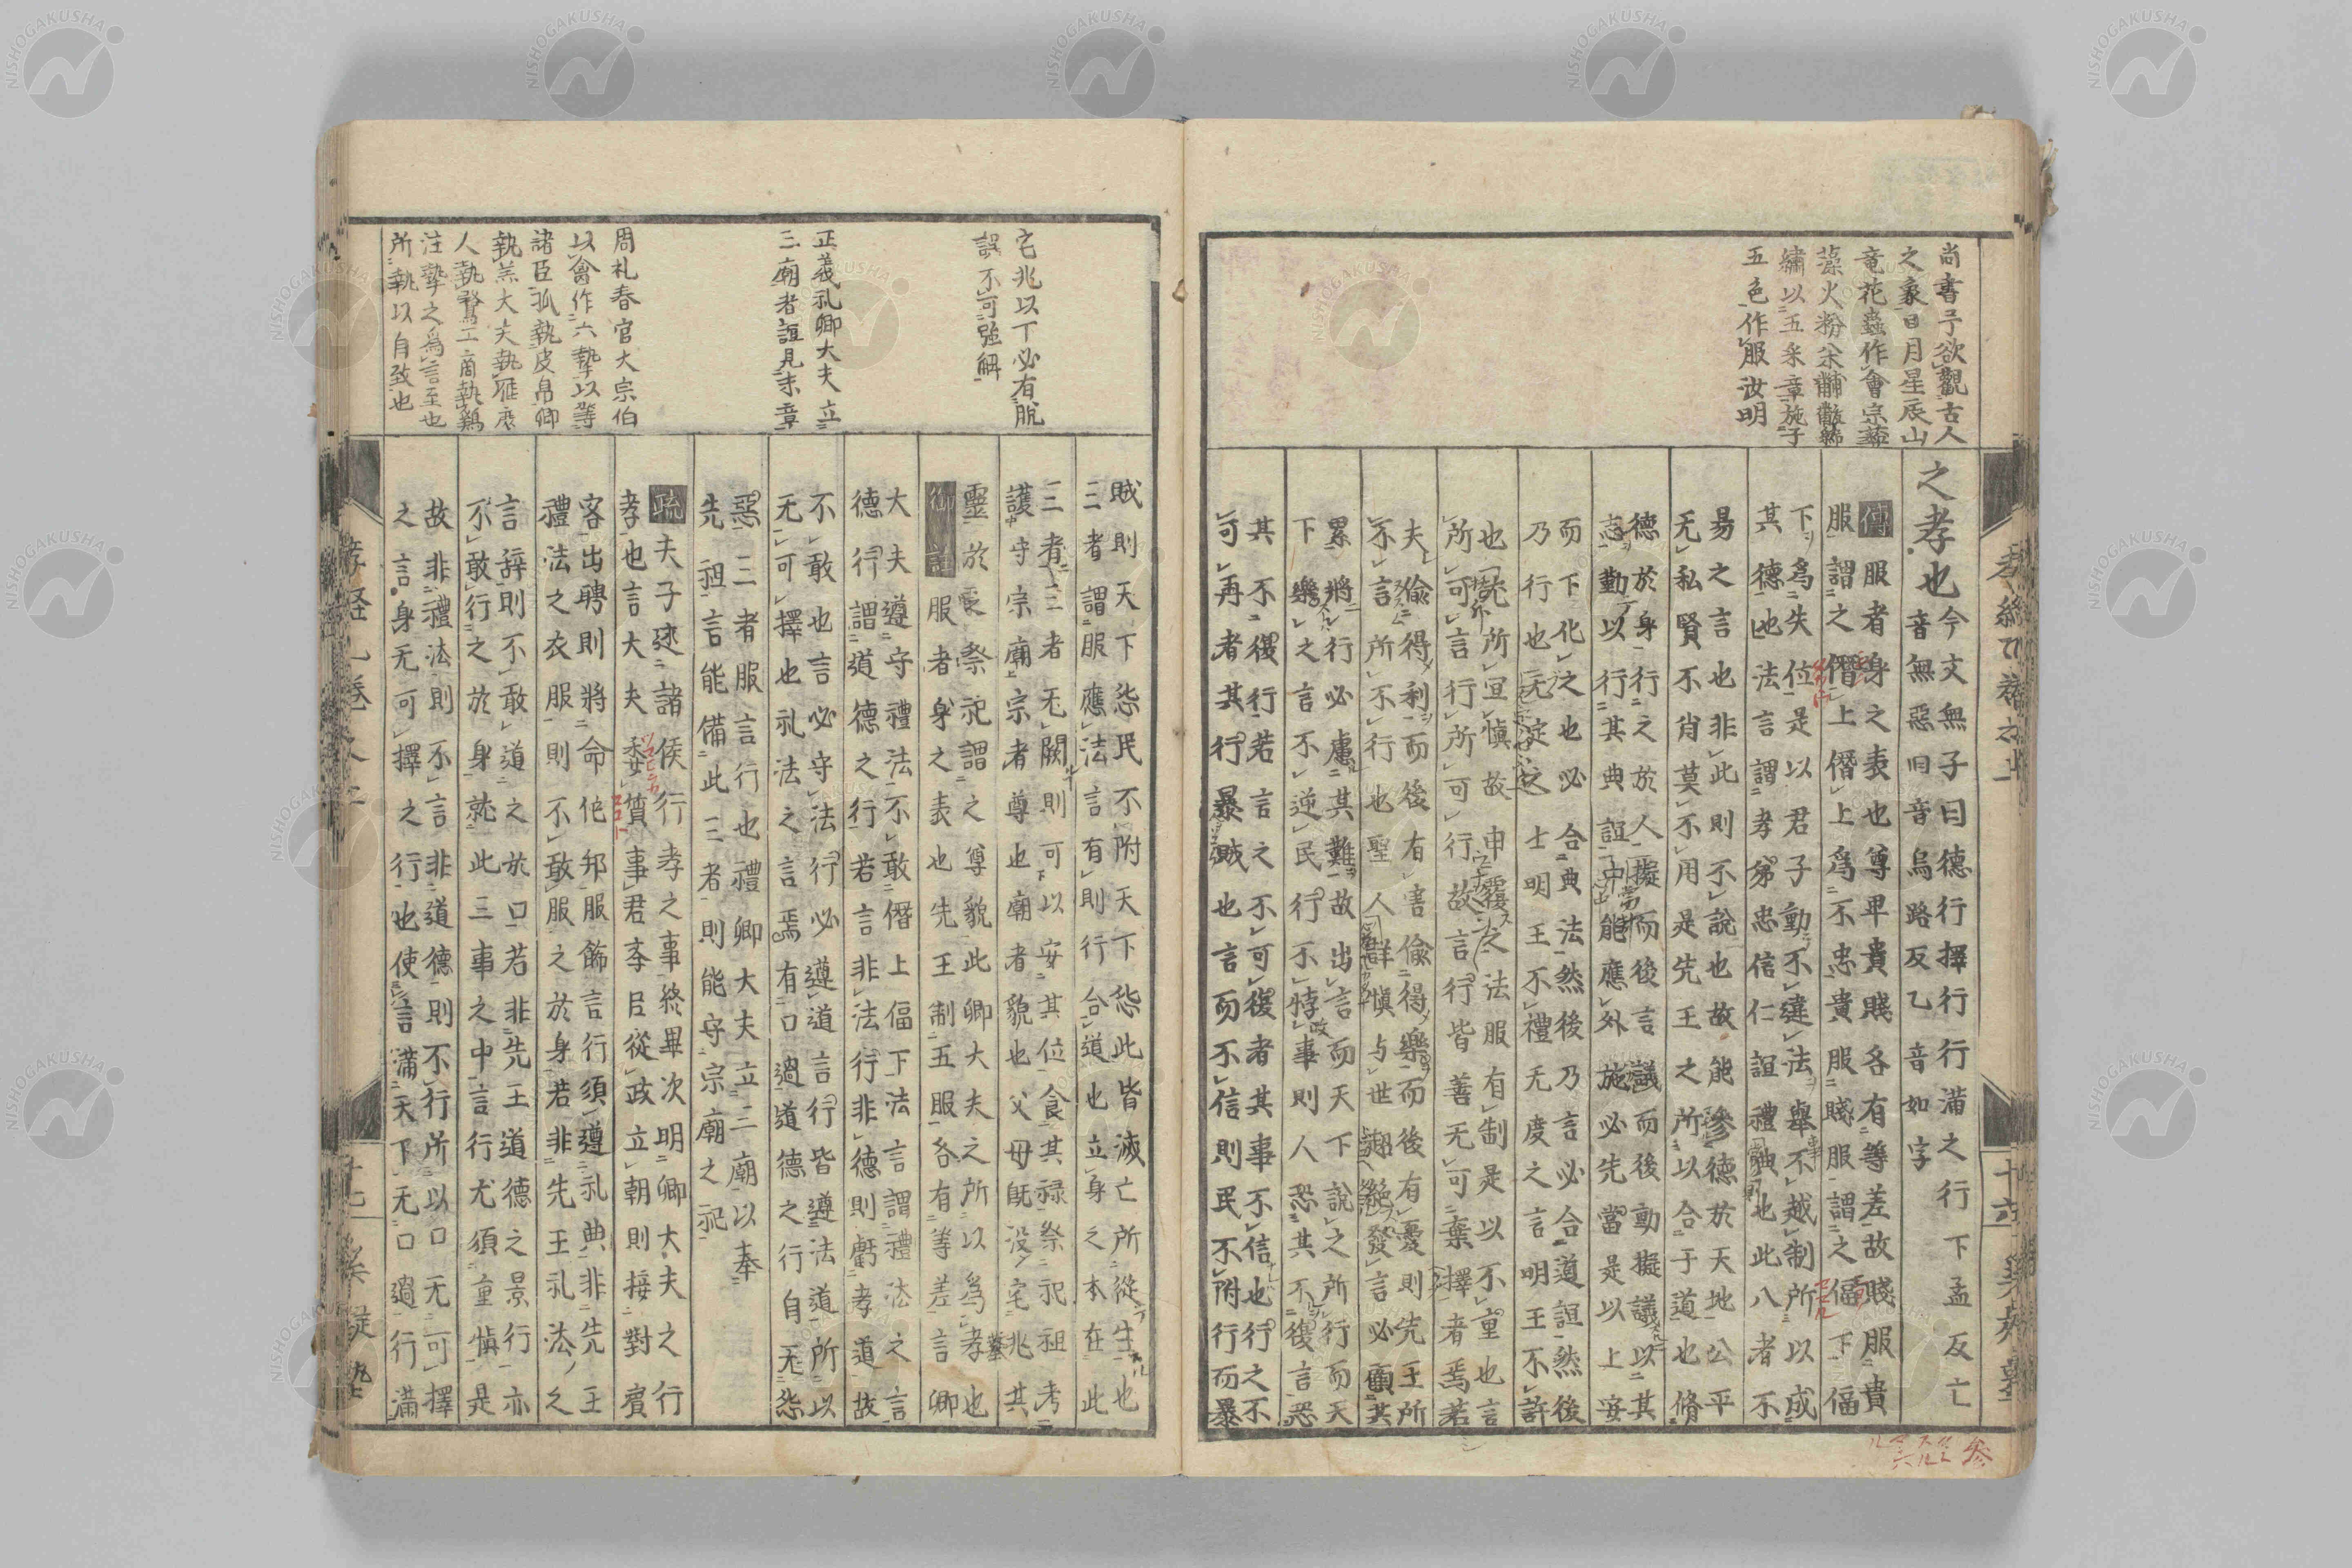 尚書予欲觀古人
之象日月星辰山
竜花蟲作會宗彝
藻火粉米黼黻絺
繡以五采章施于
五色作服汝明
之孝也
今文無子曰德行擇行行滿之行下孟反亡
音無惡旧音烏路反乙音如字
傳服者身之表也尊卑貴賤各有等差故賤服貴
服謂之僭上僭上爲不忠貴服賤服謂之偪下偪
下爲失位是以君子動不違法舉不越制所以成
其德也法言謂孝弟忠信仁誼禮典也此八者不
易之言也非此則不說也故能參德於天地公平
无私賢不肖莫不用是先王之所以合于道也脩
德於身行之於人擬而後言議而後動擬議以其
志勤以行其典誼中能應外施必先當是以上安
而下化之也必合典法然後乃言必合道誼然後
乃行也无定之士明王不禮无度之言明王不許
也先所宜慎故申覆之法服有制是以不重也言
所可言行所可行故言行皆善无可棄擇者焉若
夫偷得利而後有害偷得樂而後有憂則先王所
不言所不行也聖人詳慎与世超絶發言必顧其
累將行必慮其難故出言而天下說之所行而天
下樂之言不逆民行不悖事則人恐其不復言恐
其不復行若言之不可復者其事不信也行之不
可再者其行暴賊也言而不信則民不附行而暴
宅兆以下必有脫
誤不可強觧
正義礼卿大夫立
三廟者誼見末章
周礼春官大宗伯
以禽作六摯以等
諸臣孤執皮帛卿
執羔大夫執雁庶
人執鶩工商執鷄
注摯之爲言至也
所執以自致也
賊則天下怨民不附天下怨此皆滅亡所從生也
三者謂服應法言有則行合道也立身之本在此
三者三者无闕則可以安其位食其禄祭祀祖考
護守宗廟宗者尊也廟者貌也父母既没宅兆其
靈於㞐祭祀謂之尊貌此卿大夫之所以爲孝也
御註服者身之表也先王制五服各有等差言卿
大夫遵守禮法不敢僭上偪下法言謂禮法之言
德行謂道德之行若言非法行非德則虧孝道故
不敢也言必守法行必遵道言行皆遵法道所以
无可擇也礼法之言焉有口過道德之行自无怨
惡三者服言行也禮卿大夫立三廟以奉
先祖言能備此三者則能守宗廟之祀
疏夫子述諸侯行孝之事終畢次明卿大夫之行
孝也言大夫委質事君委臣從政立朝則接對賓
客出聘則將命他邦服飾言行須遵礼典非先王
禮法之衣服則不敢服之於身若非先王礼法之
言辞則不敢道之於口若非先王道德之景行亦
不敢行之於身就此三事之中言行尤須重慎是
故非禮法則不言非道德則不行所以口无可擇
之言身无可擇之行也使言滿天下无口過行滿